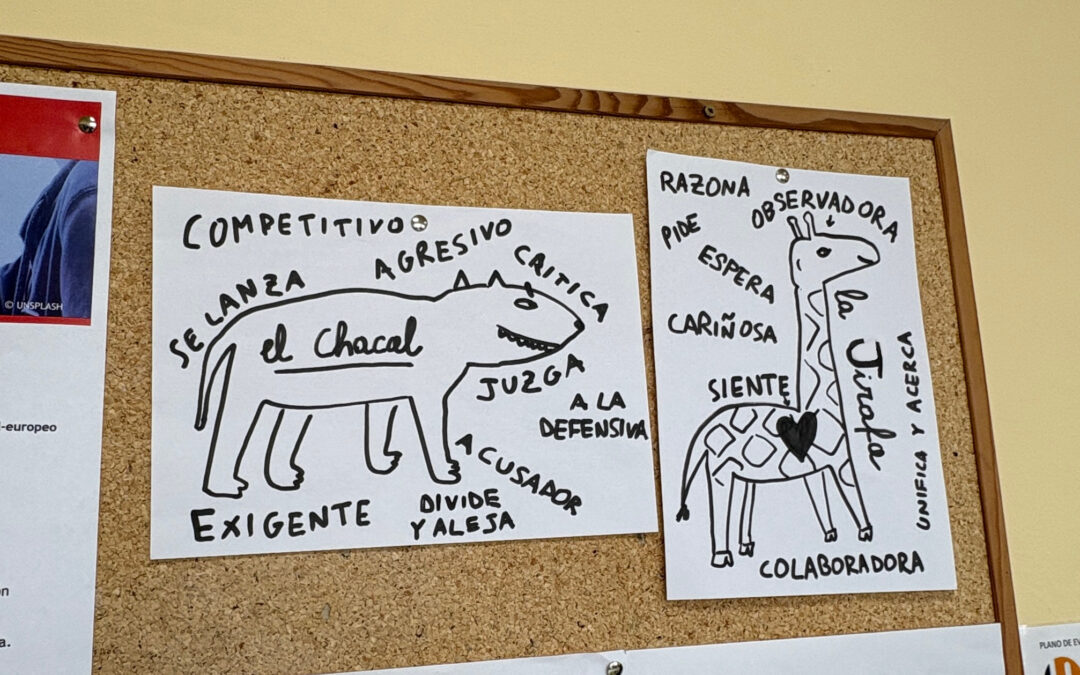 © UNSPLASH
-europeo
n
a.
COMPETITIVO
AGRESIVO
CRITICA
SE LANZA
el Chacal
JUZGA
A LA
DEFENSIVA
ACUSADOR
EXIGENTE
DIVIDE
Y ALEJA
RAZONA
OBSERVADORA
PIDE
ESPERA
CARIÑOSA
la Jirafa
SIENTE
UNIFICA Y ACERCA
COLABORADORA
PLANO DE EV